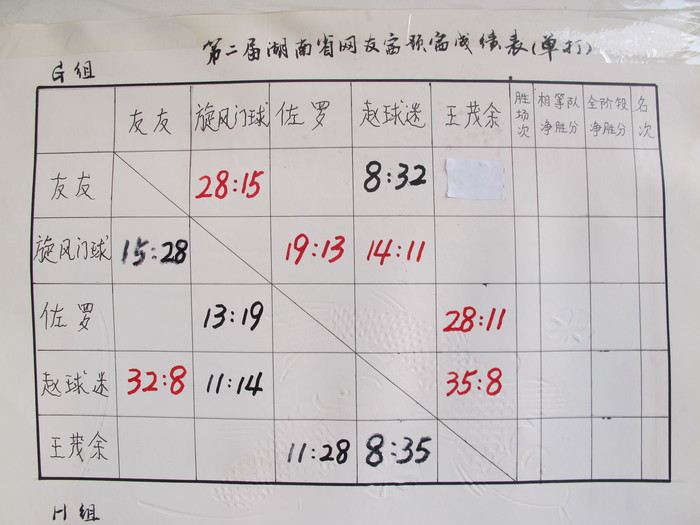 第二届湖南省网友富颐富成绩表(单打)
G组
友友 旋风门球 佐罗 赵球迷 王茂余 胜场次 相等队净胜分 全阶段净胜分 名次
友友 28:15 8:32
旋风门球 15:28 19:13 14:11
佐罗 13:19 28:11
赵球迷 32:8 11:14 35:8
王茂余 11:28 8:35
H组